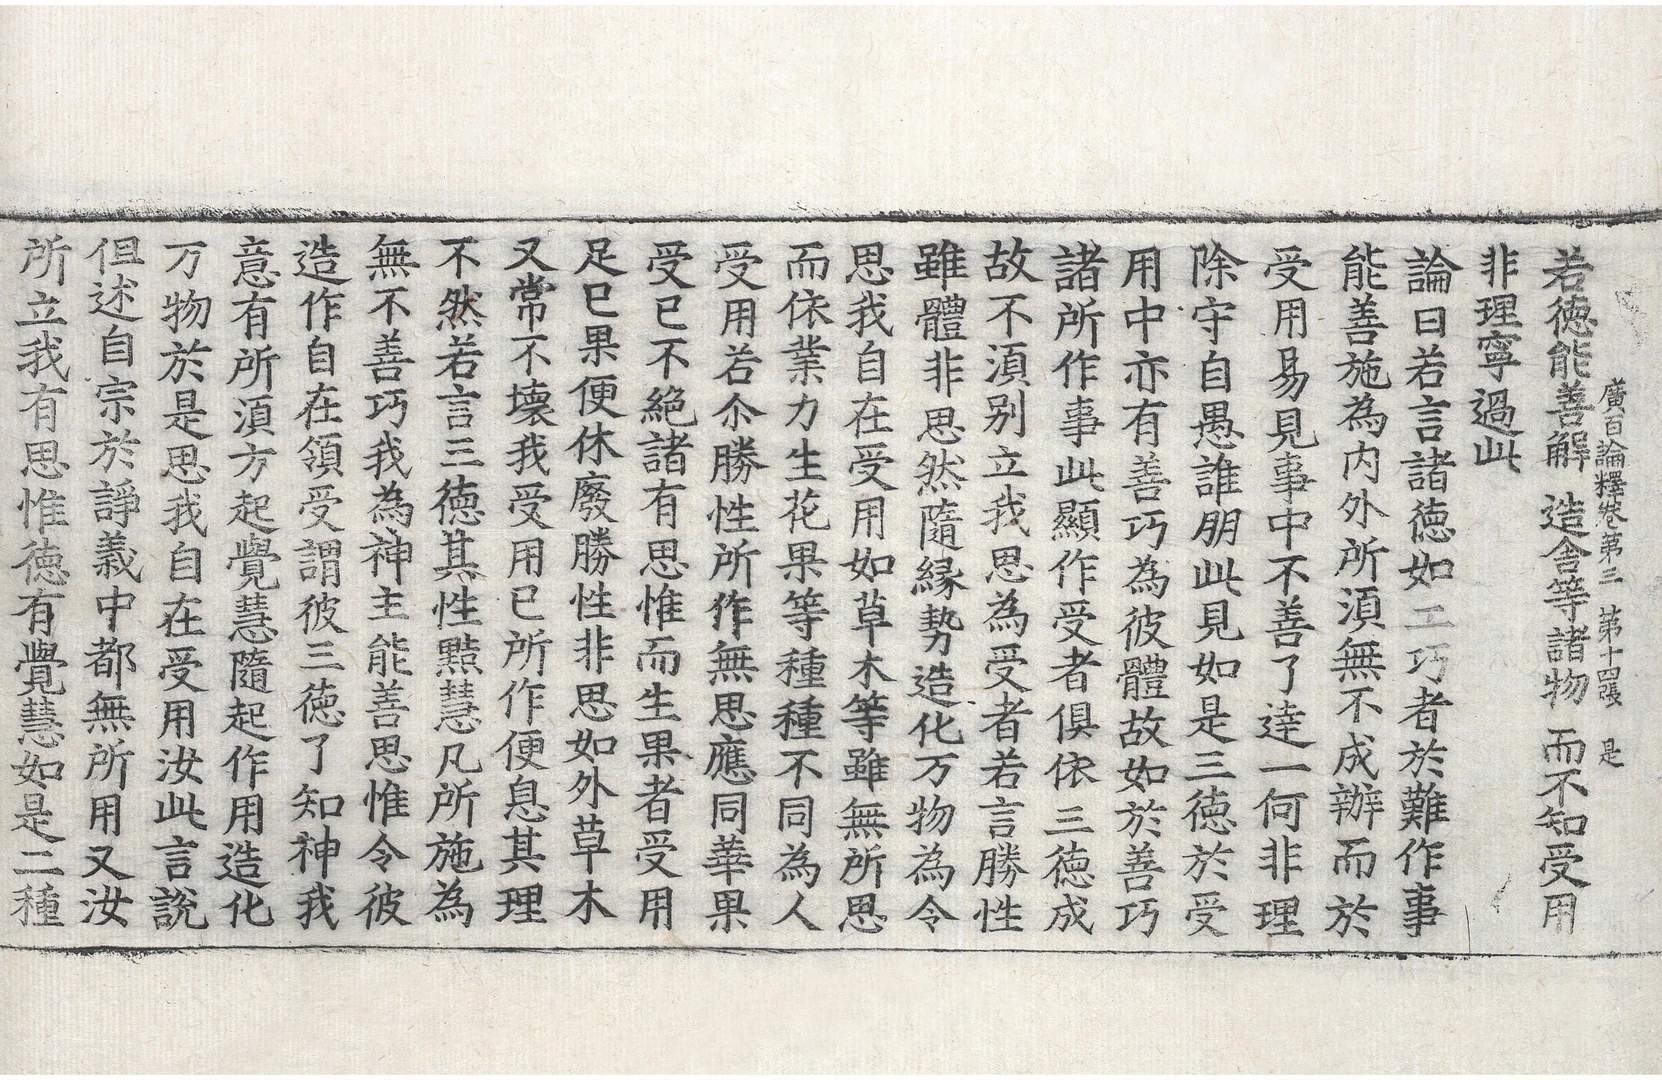 廣百論釋卷第三 第十四張 是
若德能善解 造舍等諸物 而不知受用
非理寧過此
論曰若言諸德如工巧者於難作事
能善施為內外所湏無不成辦而於
受用易見事中不善了達一何非理
除守自愚誰朋此見如是三德於受
用中亦有善巧為彼體故如於善巧
諸所作事此顯作受者俱依三德成
故不湏別立我思為受者若言勝性
雖體非思然隨緣勢造化万物為令
思我自在受用如草木等雖無所思
而依業力生花果等種種不同為人
受用若尒勝性所作無思應同華果
受已不絕諸有思惟而生果者受用
足已果便休廢勝性非思如外草木
又常不壞我受用已所作便息其理
不然若言三德其性黠慧凡所施為
無不善巧我為神主能善思惟令彼
造作自在領受謂彼三德了知神我
意有所湏方起覺慧隨起作用造化
万物於是思我自在受用汝此言說
但述自宗於諍義中都無所用又汝
所立我有思惟德有覺慧如是二種